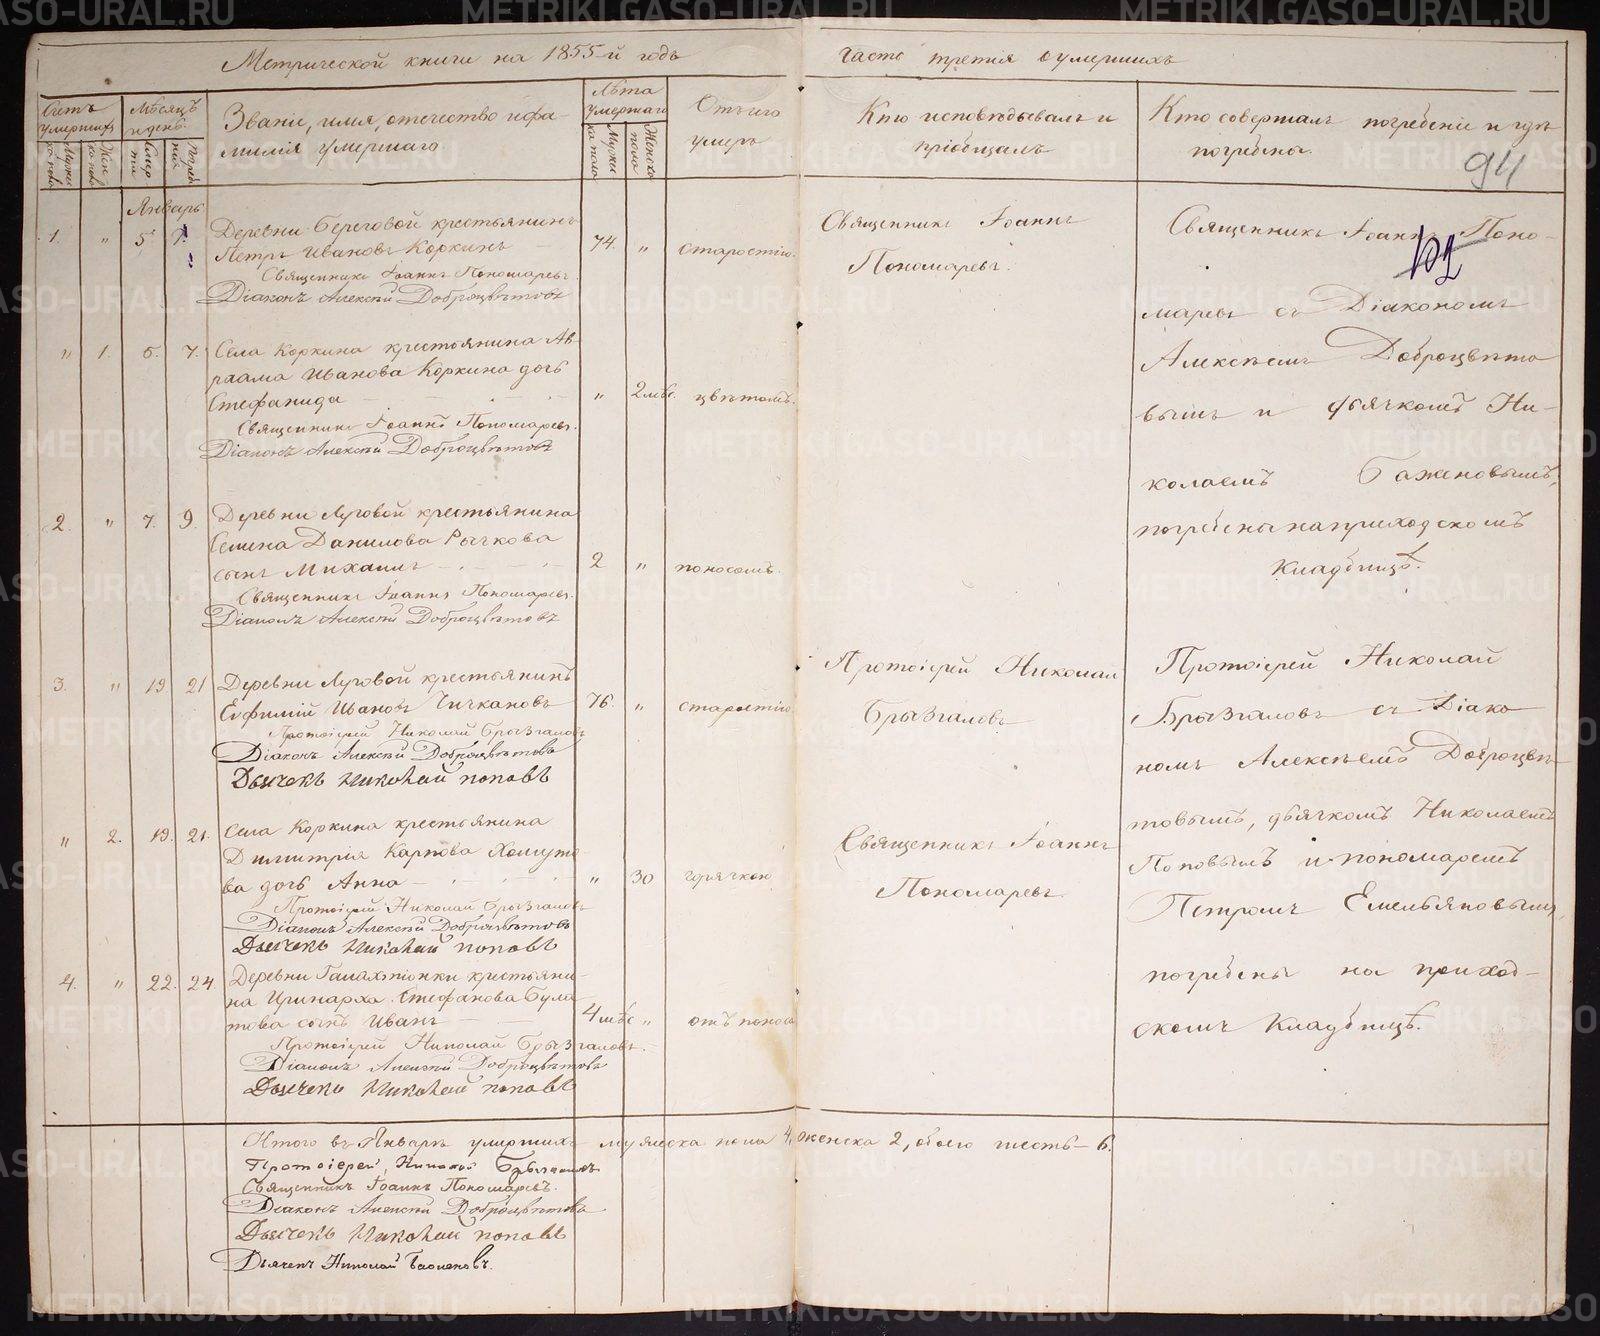 Метрической книги на 1855-й годъ
часть третія о умершихъ
Счетъ умершихъ
Мѣсяцъ и день.
Званіе, имя, отечество и фамилія умершаго
Лѣта умершаго
Отъ чего умеръ
Кто исповѣдывалъ и пріобщалъ
Кто совершалъ погребеніе и гдѣ погребены.
94
Январь
1. " 5 7.
Деревни Береговой крестьянинъ
Петръ Ивановъ Коркинъ
74. " старостію.
Священникъ Іоаннъ Пономаревъ.
Діаконъ Алексѣй Доброцвѣтовъ
Священникъ Іоаннъ
Пономаревъ.
Священникъ Іоаннъ Поно-
маревъ съ Діакономъ
Алексѣемъ Доброцвѣто
вымъ и дьячкомъ Ни-
колаемъ Баженовымъ,
погребены на приходскомъ
Кладбищѣ.
" 1. 5. 7.
Села Коркина крестьянина Ав-
раама Иванова Коркина дочь
Стефанида
" 2 мѣс. цвѣтомъ.
Священникъ Іоаннъ Пономаревъ.
Діаконъ Алексѣй Доброцвѣтовъ
2. " 7. 9.
Деревни Луговой крестьянина
Семена Данилова Рычкова
сынъ Михаилъ
2 " поносомъ.
Священникъ Іоаннъ Пономаревъ.
Діаконъ Алексѣй Доброцвѣтовъ
3. " 19. 21
Деревни Луговой крестьянинъ
Евфимій Ивановъ Чичкановъ
76. " старостію
Протоіерей Николай Брызгаловъ
Діаконъ Алексѣй Доброцвѣтовъ
Дьячекъ Николай Поповъ
Протоіерей Николай
Брызгаловъ
Протоіерей Николай
Брызгаловъ съ Діако
номъ Алексѣемъ Доброцвѣ
товымъ, дьячкомъ Николаемъ
Поповымъ и пономаремъ
Петромъ Емельяновымъ,
погребены на приход-
скомъ Кладбищѣ.
" 2. 19. 21.
Села Коркина крестьянина
Димитрія Карпова Хомуто
ва дочь Анна
" 30 горячкою
Протоіерей Николай Брызгаловъ
Діаконъ Алексѣй Доброцвѣтовъ
Дьячекъ Николай Поповъ
Священникъ Іоаннъ
Пономаревъ
4. " 22. 24
Деревни Галактіонки крестьяни-
на Иринарха Стефанова Була
това сынъ Иванъ
4 мѣс " отъ поноса
Протоіерей Николай Брызгаловъ.
Діаконъ Алексѣй Доброцвѣтовъ
Дьячекъ Николай Поповъ
Итого въ Январѣ умершихъ мужеска пола 4, женска 2, обоего шесть - 6.
Протоіерей, Николай Брызгаловъ
Священникъ Іоаннъ Пономаревъ.
Діаконъ Алексѣй Доброцвѣтовъ
Дьячекъ Николай Поповъ
Дьячекъ Николай Баженовъ.
METRIKI.GASO-URAL.RU